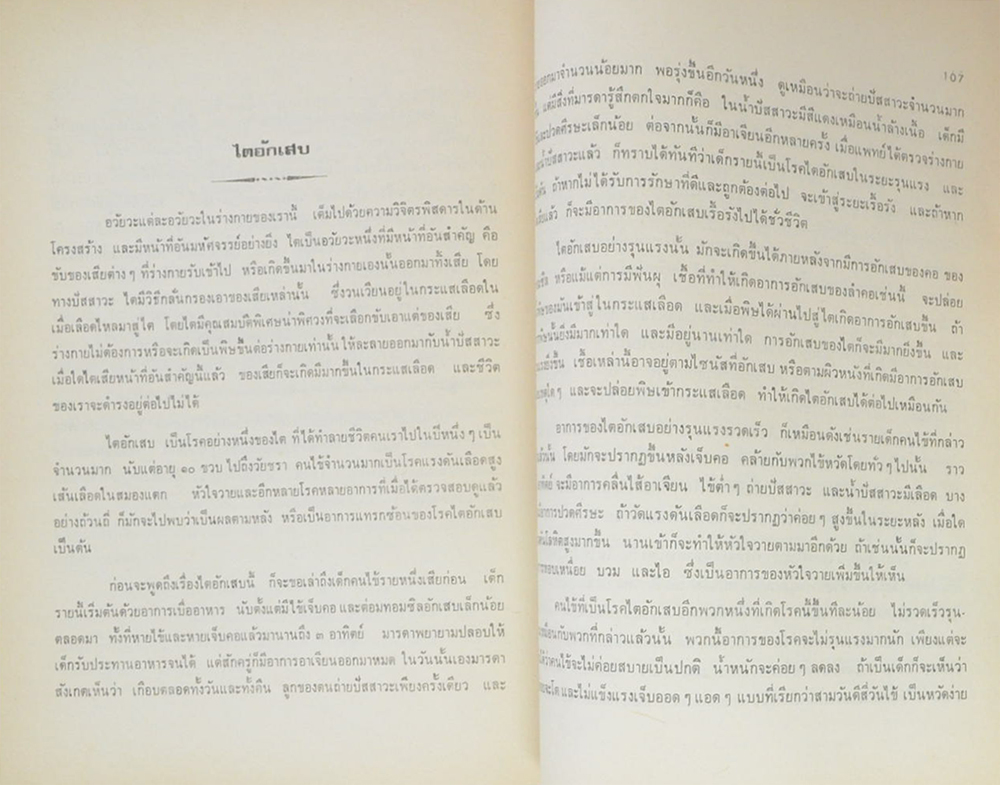 ไตอักเสบ
อวัยวะแต่ละอวัยวะในร่างกายของเรานี้ เต็มไปด้วยความวิจิตรพิสดารในด้าน
โครงสร้าง และมีหน้าที่อันมหัศจรรย์อย่างยิ่ง ไตเป็นอวัยวะหนึ่งที่มีหน้าที่อันสำคัญ คือ
ขับของเสียต่างๆ ที่ร่างกายรับเข้าไป หรือเกิดขึ้นมาในร่างกายเองนั้นออกมาทิ้งเสีย โดย
ทางปัสสาวะ ไตมีวิธีกลั่นกรองเอาของเสียเหล่านั้น ซึ่งวนเวียนอยู่ในกระแสเลือดใน
เมื่อเลือดไหลมาสู่ไต โดยไตมีคุณสมบัติพิเศษน่าพิศวงที่จะเลือกขับเอาแต่ของเสีย ซึ่ง
ร่างกายไม่ต้องการหรือจะเกิดเป็นพิษขึ้นต่อร่างกายเท่านั้น ให้ละลายออกมากับน้ำปัสสาวะ
เมื่อใดไตเสียหน้าที่อันสำคัญนี้แล้ว ของเสียก็จะเกิดมีมากขึ้นในกระแสเลือด และชีวิต
ของเราจะดำรงอยู่ต่อไปไม่ได้
ไตอักเสบ เป็นโรคอย่างหนึ่งของไต ที่ได้ทำลายชีวิตคนเราไปในปีหนึ่งๆ เป็น
จำนวนมาก นับแต่อายุ ๑๐ ขวบ ไปถึงวัยชรา คนไข้จำนวนมากเป็นโรคแรงดันเลือดสูง
เส้นเลือดในสมองแตก หัวใจวายและอีกหลายโรคหลายอาการที่เมื่อได้ตรวจสอบดูแล้ว
อย่างถ้วนถี่ ก็มักจะไปพบว่าเป็นผลตามหลัง หรือเป็นอาการแทรกซ้อนของโรคไตอักเสบ
เป็นต้น
ก่อนจะพูดถึงเรื่องไตอักเสบนี้ ก็จะขอเล่าถึงเด็กคนไข้รายหนึ่งเสียก่อน เด็ก
รายนี้เริ่มต้นด้วยอาการเบื่ออาหาร นับตั้งแต่มีไข้เจ็บคอ และต่อมทอมซิลอักเสบเล็กน้อย
ตลอดมา ทั้งที่หายไข้และหายเจ็บคอแล้วมานานถึง ๓ อาทิตย์ มารดาพยายามปลอบให้
เด็กรับประทานอาหารจนได้ แต่สักครู่ก็มีอาการอาเจียนออกมาหมด ในวันนั้นเองมารดา
สังเกตเห็นว่า เกือบตลอดทั้งวันและทั้งคืน ลูกของตนถ่ายปัสสาวะเพียงครั้งเดียว และ
107
ออกมาจำนวนน้อยมาก พอรุ่งขึ้นอีกวันหนึ่ง ดูเหมือนว่าจะถ่ายปัสสาวะจำนวนมาก
แต่มีสิ่งที่มารดารู้สึกตกใจมากก็คือ ในน้ำปัสสาวะมีสีแดงเหมือนน้ำล้างเนื้อ เด็กมี
และปวดศีรษะเล็กน้อย ต่อจากนั้นก็มีอาเจียนอีกหลายครั้ง เมื่อแพทย์ได้ตรวจร่างกาย
น้ำปัสสาวะแล้ว ก็ทราบได้ทันทีว่าเด็กรายนี้เป็นโรคไตอักเสบในระยะรุนแรง และ
ถ้าหากไม่ได้รับการรักษาที่ดีและถูกต้องต่อไป จะเข้าสู่ระยะเรื้อรัง และถ้าหาก
แล้ว ก็จะมีอาการของไตอักเสบเรื้อรังไปได้ชั่วชีวิต
ไตอักเสบอย่างรุนแรงนั้น มักจะเกิดขึ้นได้ภายหลังจากมีการอักเสบของคอ ของ
หรือแม้แต่การมีฟันผุ เชื้อที่ทำให้เกิดอาการอักเสบของลำคอเช่นนี้ จะปล่อย
ของมันเข้าสู่ในกระแสเลือด และเมื่อพิษได้ผ่านไปสู่ไตเกิดอาการอักเสบขึ้น ถ้า
นั้นยิ่งมีมากเท่าใด และมีอยู่นานเท่าใด การอักเสบของไตก็จะมีมากยิ่งขึ้น และ
ยิ่งขึ้น เชื้อเหล่านี้อาจอยู่ตามไซนัสที่อักเสบ หรือตามผิวหนังที่เกิดมีอาการอักเสบ
ใดๆ และจะปล่อยพิษเข้ากระแสเลือด ทำให้เกิดไตอักเสบได้ต่อไปเหมือนกัน
อาการของไตอักเสบอย่างรุนแรงรวดเร็ว ก็เหมือนดังเช่นรายเด็กคนไข้ที่กล่าว
แล้วนั้น โดยมักจะปรากฏขึ้นหลังเจ็บคอ คล้ายกับพวกไข้หวัดโดยทั่วๆ ไปนั้น ราว
จะมีอาการคลื่นไส้อาเจียน ไข้ต่ำๆ ถ่ายปัสสาวะ และน้ำปัสสาวะมีเลือด บาง
มีอาการปวดศีรษะ ถ้าวัดแรงดันเลือดก็จะปรากฏว่าค่อยๆ สูงขึ้นในระยะหลัง เมื่อใด
สูงมากขึ้น นานเข้าก็จะทำให้หัวใจวายตามมาอีกด้วย ถ้าเช่นนั้นก็จะปรากฏ
หอบเหนื่อย บวม และไอ ซึ่งเป็นอาการของหัวใจวายเพิ่มขึ้นให้เห็น
คนไข้ที่เป็นโรคไตอักเสบอีกพวกหนึ่งที่เกิดโรคนี้ขึ้นทีละน้อย ไม่รวดเร็วรุน-
เหมือนกับพวกที่กล่าวแล้วนั้น พวกนี้อาการของโรคจะไม่รุนแรงมากนัก เพียงแต่จะ
ว่าคนไข้จะไม่ค่อยสบายเป็นปกติ น้ำหนักจะค่อยๆ ลดลง ถ้าเป็นเด็กก็จะเห็นว่า
และไม่แข็งแรงเจ็บออดๆ แอดๆ แบบที่เรียกว่าสามวันดีสี่วันไข้ เป็นหวัดง่าย